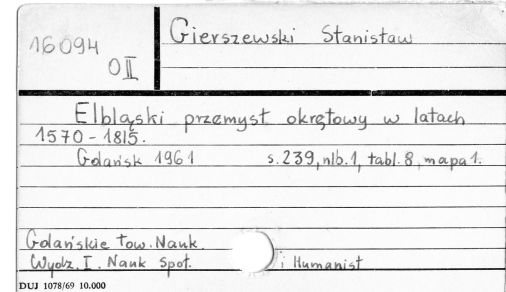 16094
OII
Gierszewski Stanisław
Elbląski przemysł okrętowy w latach
1570-1815.
Gdańsk 1961 s.239, nlb.1, tabl.8, mapa 1.
Gdańskie Tow. Nauk.
Wydz. I. Nauk Społ. i Humanist
DUJ 1078/69 10.000